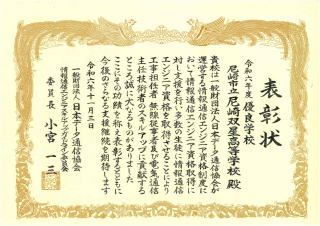 表彰状
令和六年度 優良学校
尼崎市立尼崎双星高等学校 殿
貴校は一般財団法人日本データ通信協会が
運営する情報通信エンジニア資格制度に
おいて情報通信エンジニア資格取得に
対し支援を行い多数の生徒に情報通信
エンジニア資格を取得させることにより
工事担任者 無線従事者及び電気通信
主任技術者のスキルアップに貢献する
ところ誠に大なるものがありました
ここにその功績を称え表彰するとともに
今後のさらなる支援継続を期待します
令和六年十一月三日
一般財団法人日本データ通信協会
委員長 小宮一三